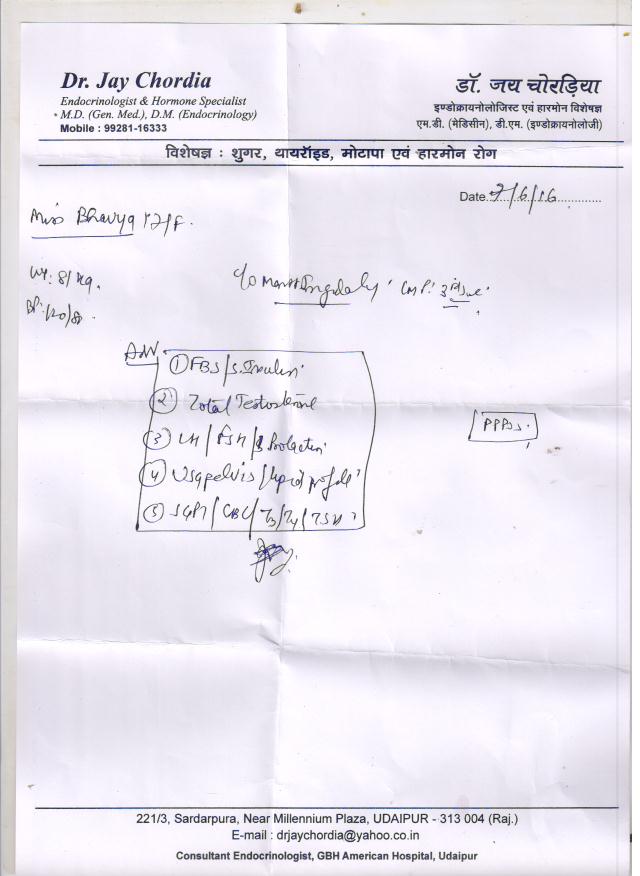 Dr. Jay Chordia
Endocrinologist & Hormone Specialist
M.D. (Gen. Med.), D.M. (Endocrinology)
Mobile : 99281-16333
डॉ. जय चोरड़िया
इण्डोक्रायनोलोजिस्ट एवं हारमोन विशेषज्ञ
एम.डी. (मेडिसीन), डी.एम. (इण्डोक्रायनोलोजी)
विशेषज्ञ : शुगर, थायरॉइड, मोटापा एवं हारमोन रोग
Date. 7/6/16
Miss Bhavya
Wt: 81 kg.
BP: 120/80.
c/o
Adv
① FBS / S. Insulin
② Total Testosterone
③ LH / FSH / S Prolactin
④ USG pelvis / lipid profile
⑤ SGPT / CBC / T3 / T4 / TSH
PPBS.
221/3, Sardarpura, Near Millennium Plaza, UDAIPUR - 313 004 (Raj.)
E-mail : drjaychordia@yahoo.co.in
Consultant Endocrinologist, GBH American Hospital, Udaipur